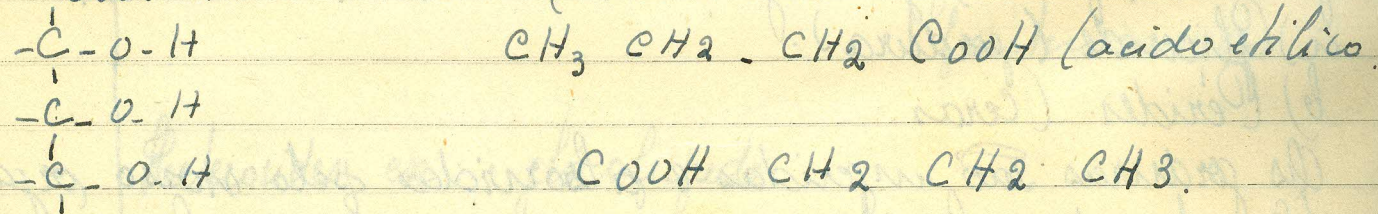 -C-O-H CH3 CH2 - CH2 COOH (acido etilico.
-C-O-H
-C-O-H COOH CH2 CH2 CH3.